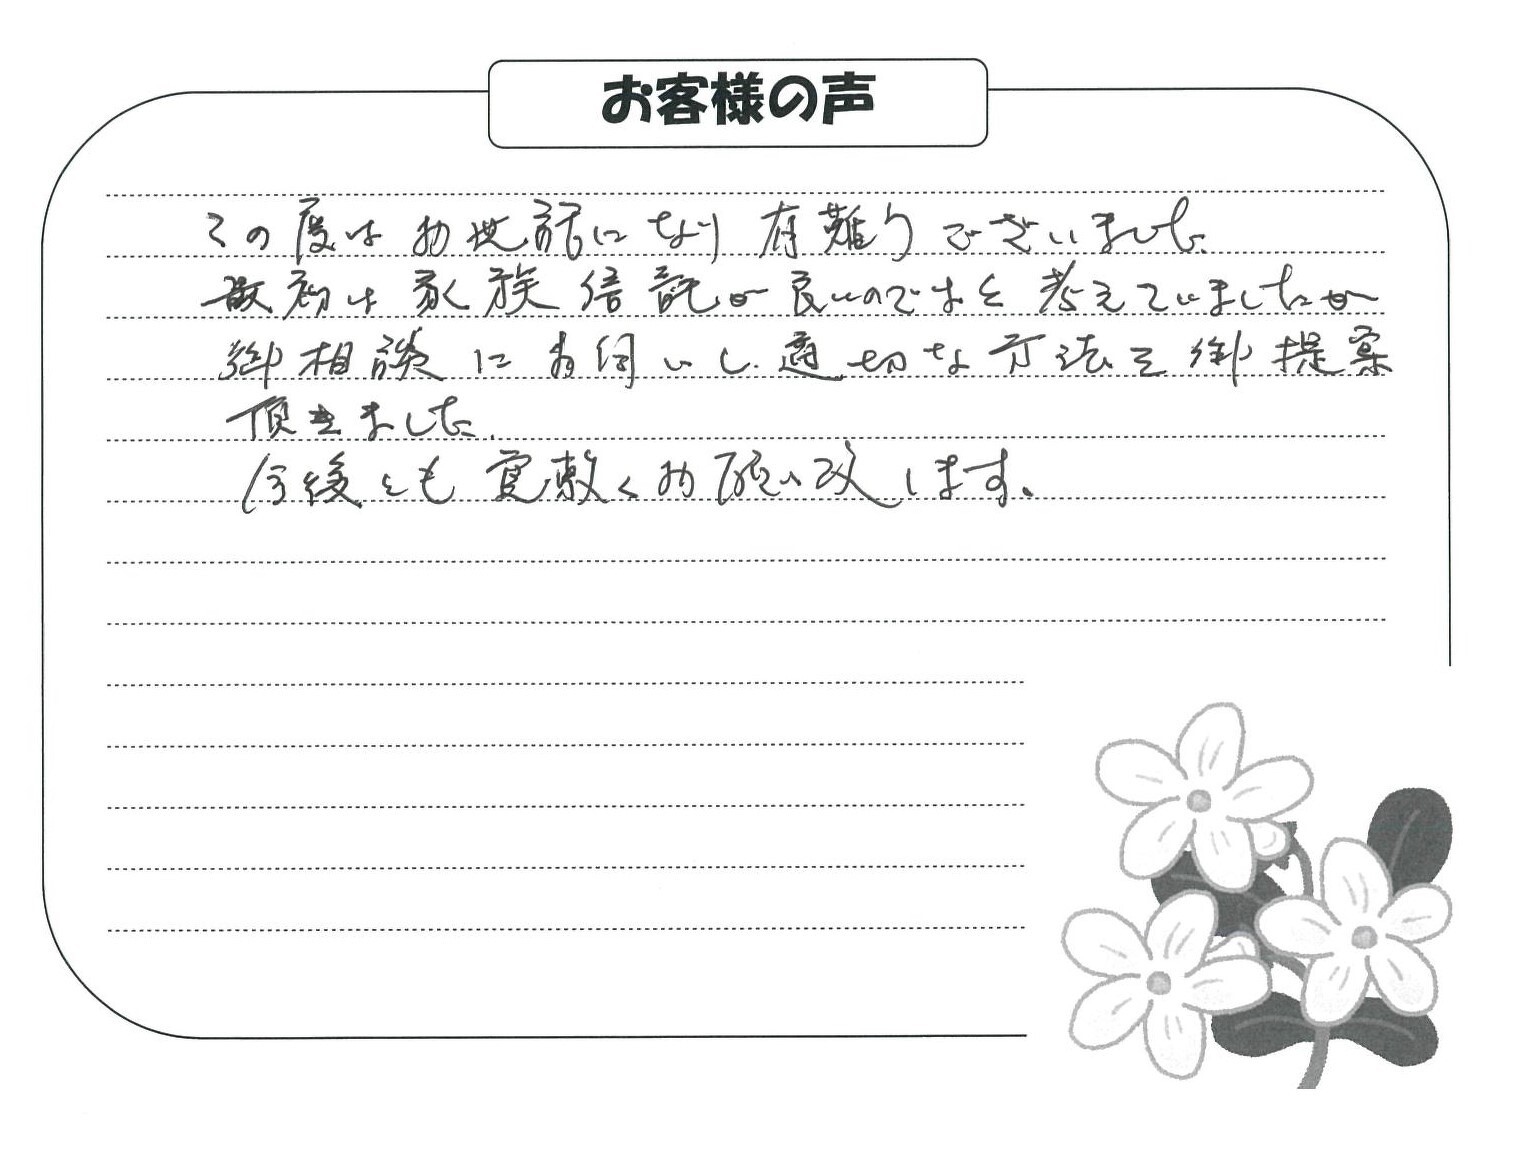 お客様の声
この度はお世話になり有難うございました。
最初は家族信託が良いのではと考えていましたが
御相談にお伺いし、適切な方法を御提案
頂きました。
今後とも宜敷くお願い致します。